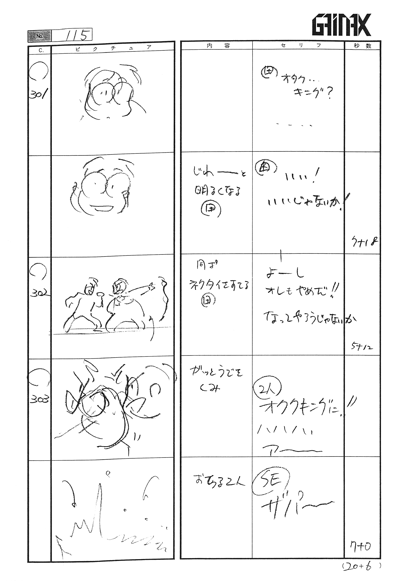 GAINAX
No. 115
C. ピクチュア 内容 セリフ 秒数
301
田 オタク‥
キング?
‥‥
じわーーと
明るくなる
田
田 いい!
いいじゃないか!
7+18
302
ネクタイをすてる
田
よーし
オレもやめだ!!
なってやろうじゃないか
5+12
303
がっとうでを
くみ
2人
オタクキングに!!
ハハハハ
アーー
おちる2人
SE
ザパーー
7+0
(20+6)